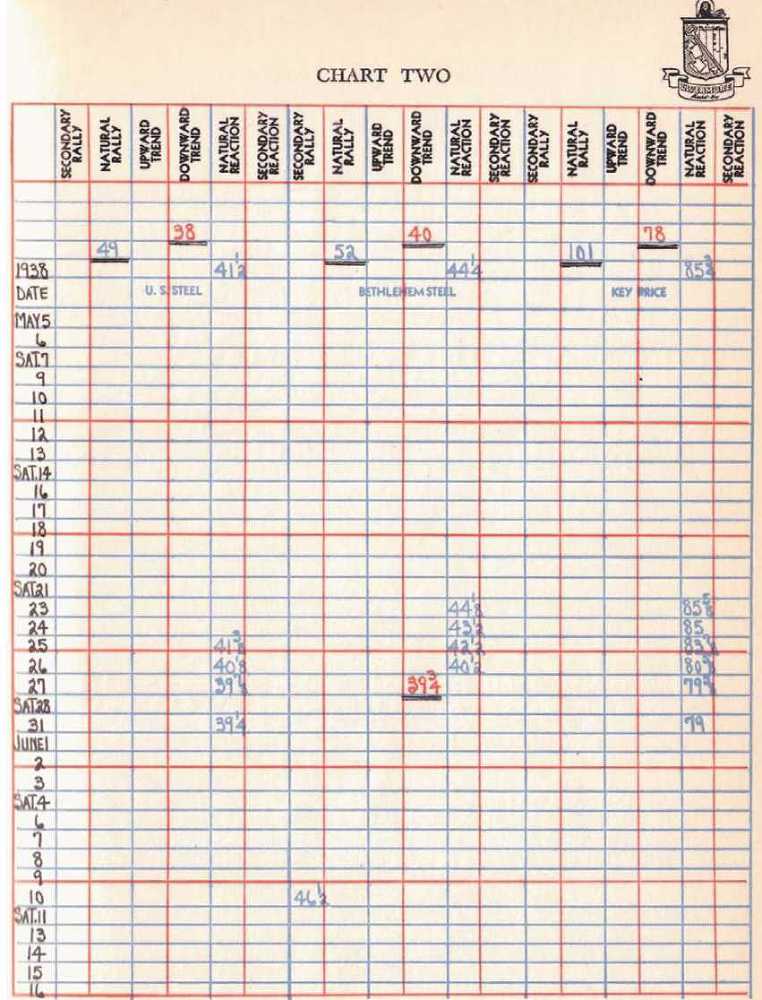 CHART TWO
LIVERMORE
SECONDARY RALLY NATURAL RALLY UPWARD TREND DOWNWARD TREND NATURAL REACTION SECONDARY REACTION SECONDARY RALLY NATURAL RALLY UPWARD TREND DOWNWARD TREND NATURAL REACTION SECONDARY REACTION SECONDARY RALLY NATURAL RALLY UPWARD TREND DOWNWARD TREND NATURAL REACTION SECONDARY REACTION
38 40 78
49 52 101
1938 41½ 44¼ 85¾
DATE U.S. STEEL BETHLEHEM STEEL KEY PRICE
MAY 5
6
SAT.7
9
10
11
12
13
SAT.14
16
17
18
19
20
SAT.21
23 44⅛ 85⅝
24 43½ 85
25 41⅜ 42½
26 40⅛ 40½
27 39¾
SAT.28
31 39¼ 79
JUNE 1
2
3
SAT.4
6
7
8
9
10 46½
SAT.11
13
14
15
16